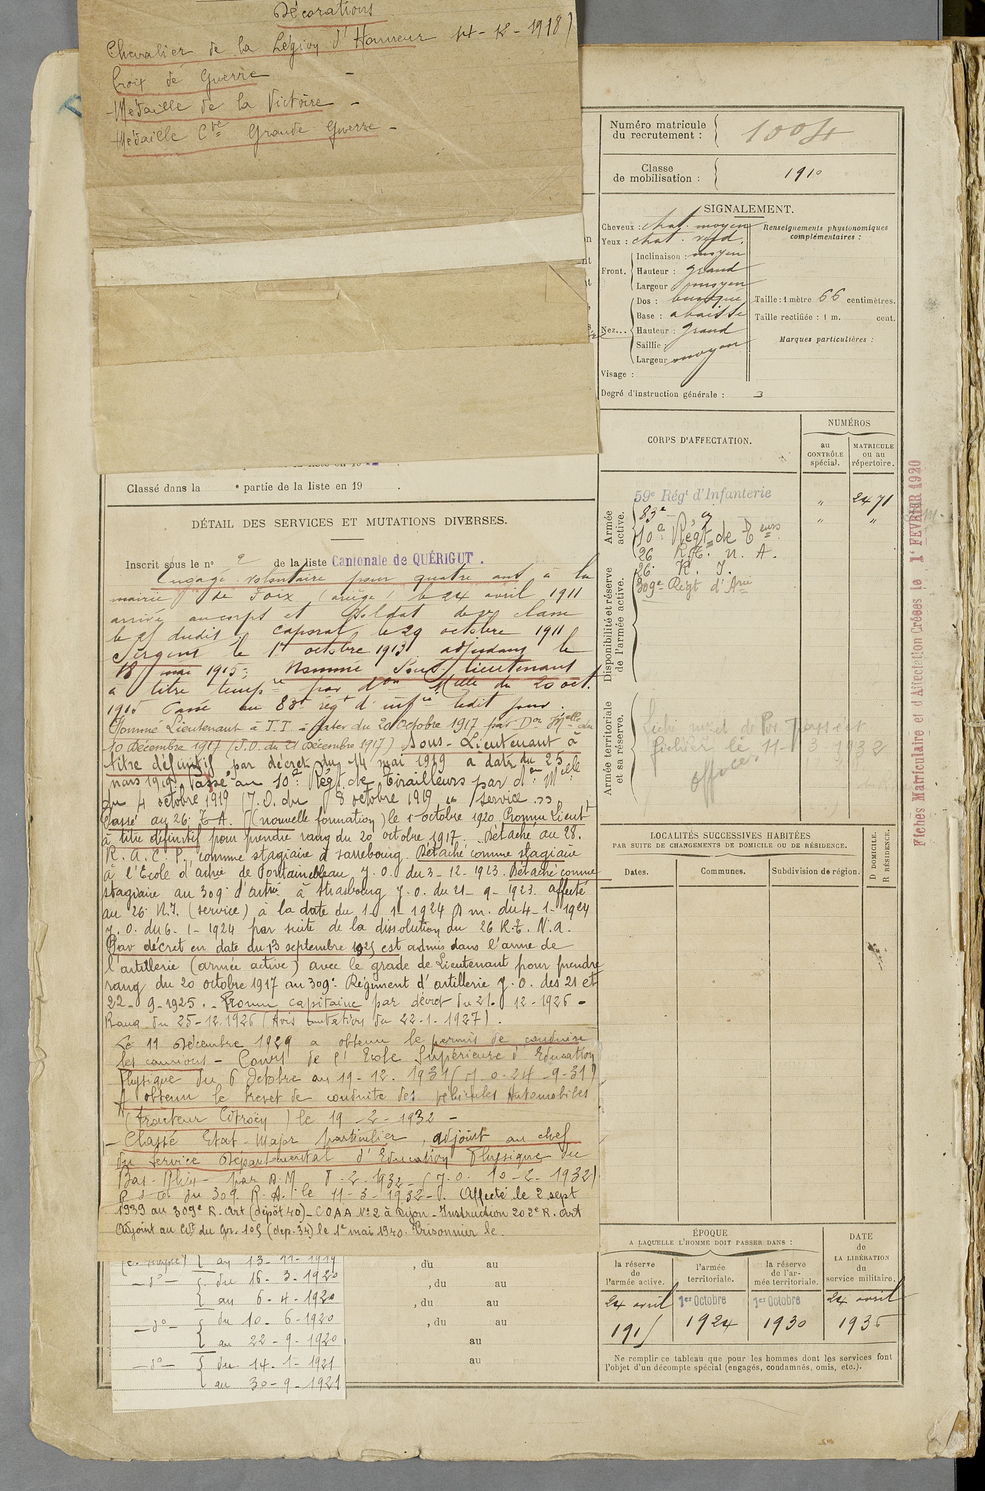 Décorations
Chevalier de la Légion d'Honneur 14-12-1918)
Croix de Guerre -
-Médaille de la Victoire -
-Médaille Cve Grande Guerre -
Numéro matricule
du recrutement : 1004
Classe
de mobilisation : 1910
SIGNALEMENT.
Cheveux : chat. moyen
Yeux : chat.
Renseignements physionomiques
complémentaires :
Front.
Inclinaison : moyen
Hauteur : grand
Largeur : moyen
Nez...
Dos : busqué
Base : abaissée
Hauteur : grand
Saillie :
Largeur : moyen
Taille : 1 mètre 66 centimètres.
Taille rectifiée : 1 m. cent.
Marques particulières :
Visage :
Degré d'instruction générale : 3
CORPS D'AFFECTATION.
NUMÉROS
au
CONTRÔLE
spécial.
MATRICULE
ou au
répertoire.
Armée
active.
59e Régt d'Infanterie " 2471
83e " "
10e Régt de Teurs
26 R.T. N. A.
26. R. T.
309e Régt d'Arie
Disponibilité et réserve
de l'armée active.
Armée territoriale
et sa réserve.
le 11-3-1932
Offices
Fiches Matriculaire et d'Affectation Créées le 1er FEVRIER 1920
Classé dans la e partie de la liste en 19 .
DÉTAIL DES SERVICES ET MUTATIONS DIVERSES.
Inscrit sous le no 2 de la liste Cantonale de QUÉRIGUT .
Engagé volontaire pour quatre ans à la
mairie de Foix (ariège) le 24 avril 1911
arrivé au corps et Soldat de 2e classe
le 25 dudit caporal le 29 octobre 1911
Sergent le 1er octobre 1913 adjudant le
18 mai 1915; Nommé Sous-lieutenant
à titre tempre par don Mlle du 20 oct.
1915 Passé au 83e régt d'infie ledit jour.
Nommé Lieutenant à T.T. à dater du 20 Octobre 1917 par Don Mlle du
10 Décembre 1917 (J.O. du 21 Décembre 1917) Sous-Lieutenant à
titre définitif par décret du 14 mai 1919 à date du 25
mars 1919 Passé au 10e Régt de Tirailleurs par Don Mlle
du 4 octobre 1919 J.O. du 8 octobre 1919 " service "
Passé au 26e T.A. (nouvelle formation) le 1er octobre 1920 Promu Lieutt
à titre définitif pour prendre rang du 20 octobre 1917. Détaché au 28.
R.A.C.P. comme stagiaire à Sarrebourg. Détaché comme stagiaire
à l'Ecole d'artie de Fontainebleau J.O. du 3-12-1923. Détaché comme
stagiaire au 309e d'artie à Strasbourg J.O. du 21-9-1923. affecté
au 26e N.I. (service) à la date du 1-1-1924 D.m. du 4-1-1924
J.O. du 6-1-1924 par suite de la dissolution du 26 R.T. N.A.
Par décret en date du 13 septembre 1925 est admis dans l'arme de
l'artillerie (armée active) avec le grade de Lieutenant pour prendre
rang du 20 octobre 1917 au 309e Régiment d'artillerie J.O. des 21 et
22-9-1925. - Promu capitaine par décret du 21 12-1926 -
Rang du 25-12-1926 (Avis mutation du 22-1-1927).
Le 11 Décembre 1929 a obtenu le permis de conduire
les camions - Cours de l'Ecole Supérieure d'Education
Physique du 6 Octobre au 19-12-1931 (J.O. 24-9-31)
A obtenu le brevet de conduite des véhicules Automobiles
(tracteur Citroën) le 19-2-1932 -
- Classé Etat-Major particulier, adjoint au chef
du Service départemental d'Education Physique du
Bas-Rhin - par D.M. 8-2-1932 - (J.O. 10-2-1932)
du 309 R.A. le 11-3-1932 - Affecté le 2 sept
1939 au 309e R. Art (dépôt 40) - COAA No 2 à Dijon - Instruction 202e R. Art
Adjoint au Ct du Gr. 105 (dep. 34) le 1er mai 1940. Prisonnier le
au 13-11-1919
-do- du 16-3-1920
au 6-4-1920
-do- du 10-6-1920
au 22-9-1920
-do- du 14-1-1921
au 30-9-1921
, du au
, du au
, du au
au
au
LOCALITÉS SUCCESSIVES HABITÉES
PAR SUITE DE CHANGEMENTS DE DOMICILE OU DE RÉSIDENCE.
Dates.
Communes.
Subdivision de région.
D DOMICILE.
R RÉSIDENCE.
ÉPOQUE
A LAQUELLE L'HOMME DOIT PASSER DANS :
la réserve
de
l'armée active.
l'armée
territoriale.
la réserve
de l'ar-
mée territoriale.
DATE
de
LA LIBÉRATION
du
service militaire.
24 avril
1915
1er Octobre
1924
1er Octobre
1930
24 avril
1936
Ne remplir ce tableau que pour les hommes dont les services font
l'objet d'un décompte spécial (engagés, condamnés, omis, etc.).